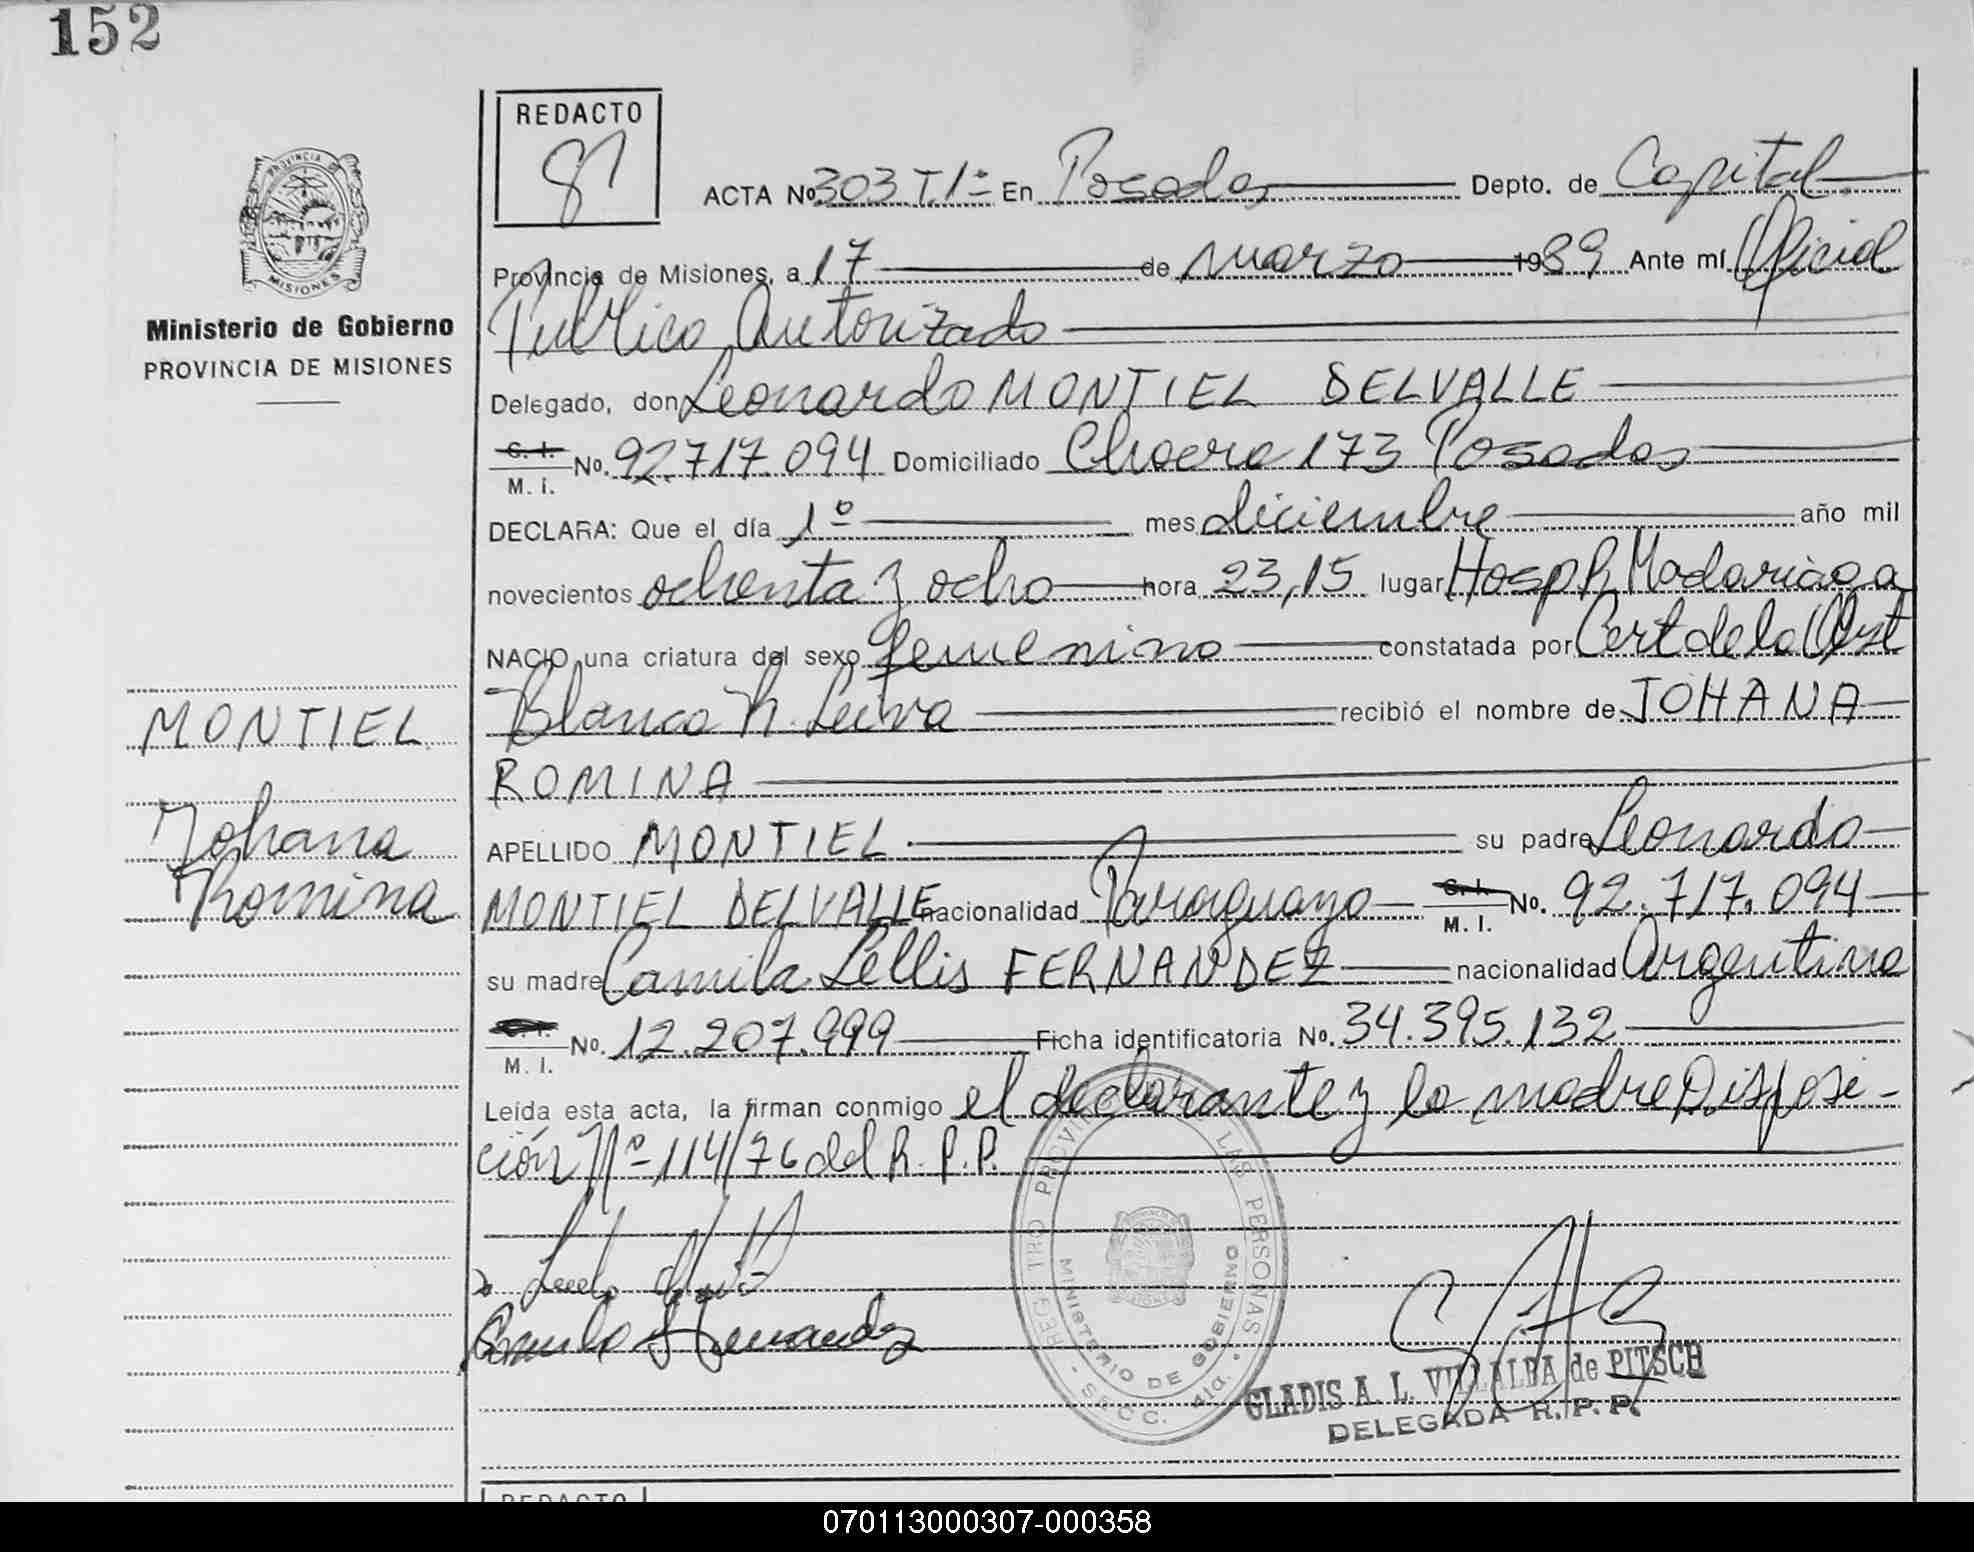 152
REDACTO
ACTA Nº 303 T.1º En Posadas Depto. de Capital
Provincia de Misiones, a 17 de marzo 1989 Ante mí Oficial
Publico Autorizado
Delegado, don Leonardo MONTIEL DELVALLE
C. I. M. I. No. 92.717.094 Domiciliado 173 Posadas
DECLARA: Que el día 1º mes diciembre año mil
novecientos ochenta y ocho hora 23,15 lugar Hosp R Madariaga
NACIO una criatura del sexo femenino constatada por Cert de la Obst
Blanca R. Leiva recibió el nombre de JOHANA
ROMINA
APELLIDO MONTIEL su padre Leonardo
MONTIEL DELVALLE nacionalidad Paraguayo C. I. M. I. No. 92.717.094
su madre Camila Lellis FERNANDEZ nacionalidad Argentina
M. I. No. 12.207.999 Ficha identificatoria No. 34.395.132
Leída esta acta, la firman conmigo el declarante y la madre Disposi-
ción Nº 114/76 del R.P.P.
Ministerio de Gobierno
PROVINCIA DE MISIONES
MONTIEL
Johana
Romina
PROVINCIA DE
MISIONES
REGISTRO PROVINCIAL DE LAS PERSONAS
MINISTERIO DE GOBIERNO
SECC. 41a.
Camila Fernandez
GLADIS A. L. VILLALBA de PITSCH
DELEGADA R. P. P.
REDACTO
070113000307-000358